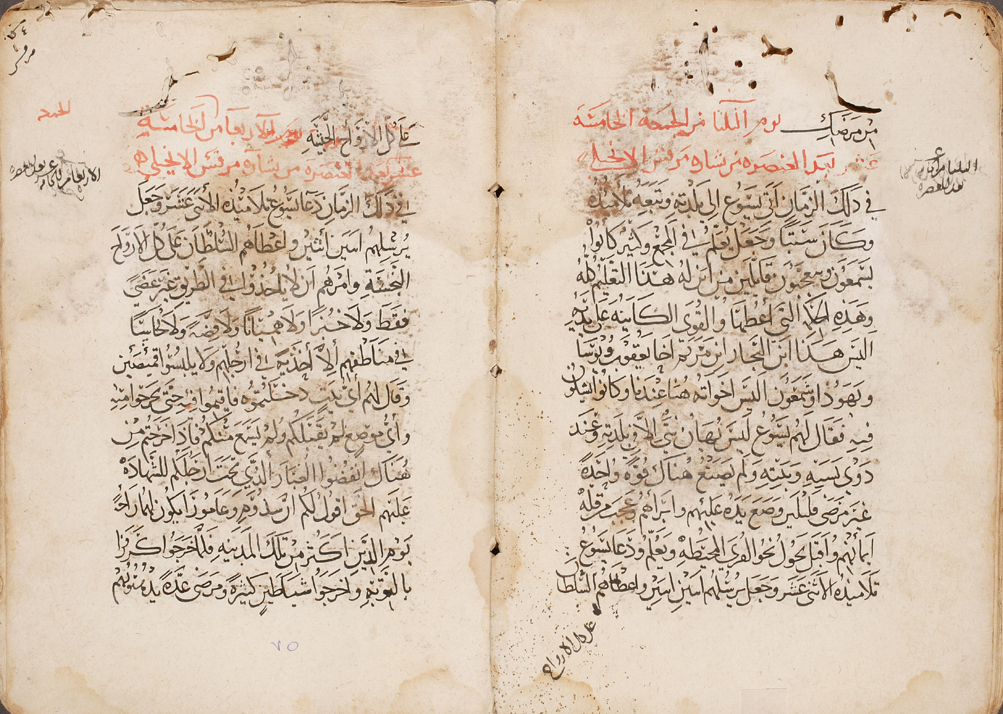 من مرضك يوم الثلثا من الجمعة الخامسة
عشر بعد العنصره من بشاره مرقس الانجيلي
في ذلك الزمان اتى يسوع الى بلدته وتبعه تلاميذه
وكان سبتا وجعل يعلم في المجمع وكثير كانوا
يسمعون متعجبون قايلين من اين له هذا التعليم كله
وهذه الحكمة التي اعطيها والقوى الكاينه على يديه
اليس هذا ابن النجار ابن مريم اخا يعقوب ويوسا
ويهودا وشمعون اليس اخواته هنا عندنا وكانوا يشكون
فيه فقال لهم يسوع ليس يهان نبي الا في بلدته وعند
ذوي نسبه وبيته ولم يصنع هناك قوة واحدة
غير مرضى قليلين وضع يده عليهم وابراهم وعجب من قلة
ايمانهم واقبل يجول نحو القرى المحيطه ويعلم ودعا يسوع
تلاميذه الاثني عشر وجعل يرسلهم اثنين اثنين واعطاهم السلطان
على كل الارواح
على كل الارواح النجسة يوم الاربعا من الخامسة
عشر بعد العنصره من بشاره مرقس الانجيلي
في ذلك الزمان دعا يسوع تلاميذه الاثني عشر وجعل
يرسلهم اثنين اثنين واعطاهم السلطان على كل الارواح
النجسة وامرهم ان لا ياخذوا في الطريق غير عصى
فقط ولا خبزا ولا هميانا ولا فضه ولا نحاسا
في مناطقهم الا احذية في ارجلهم ولا يلبسوا قميصين
وقال لهم اي بيت دخلتموه فاقيموا فيه حتى تخرجوا منه
واي موضع لم يقبلكم ولم يسمع منكم فاذا خرجتم من
هناك انفضوا الغبار الذي تحت ارجلكم للشهادة
عليهم الحق اقول لكم ان سدوم وعامورا يكون لهما راحة
يوم الدين اكثر من تلك المدينه فلما خرجوا كرزوا
بالتوبة واخرجوا شياطين كثيرة ومرضى عدة يدهنونهم
٧٥